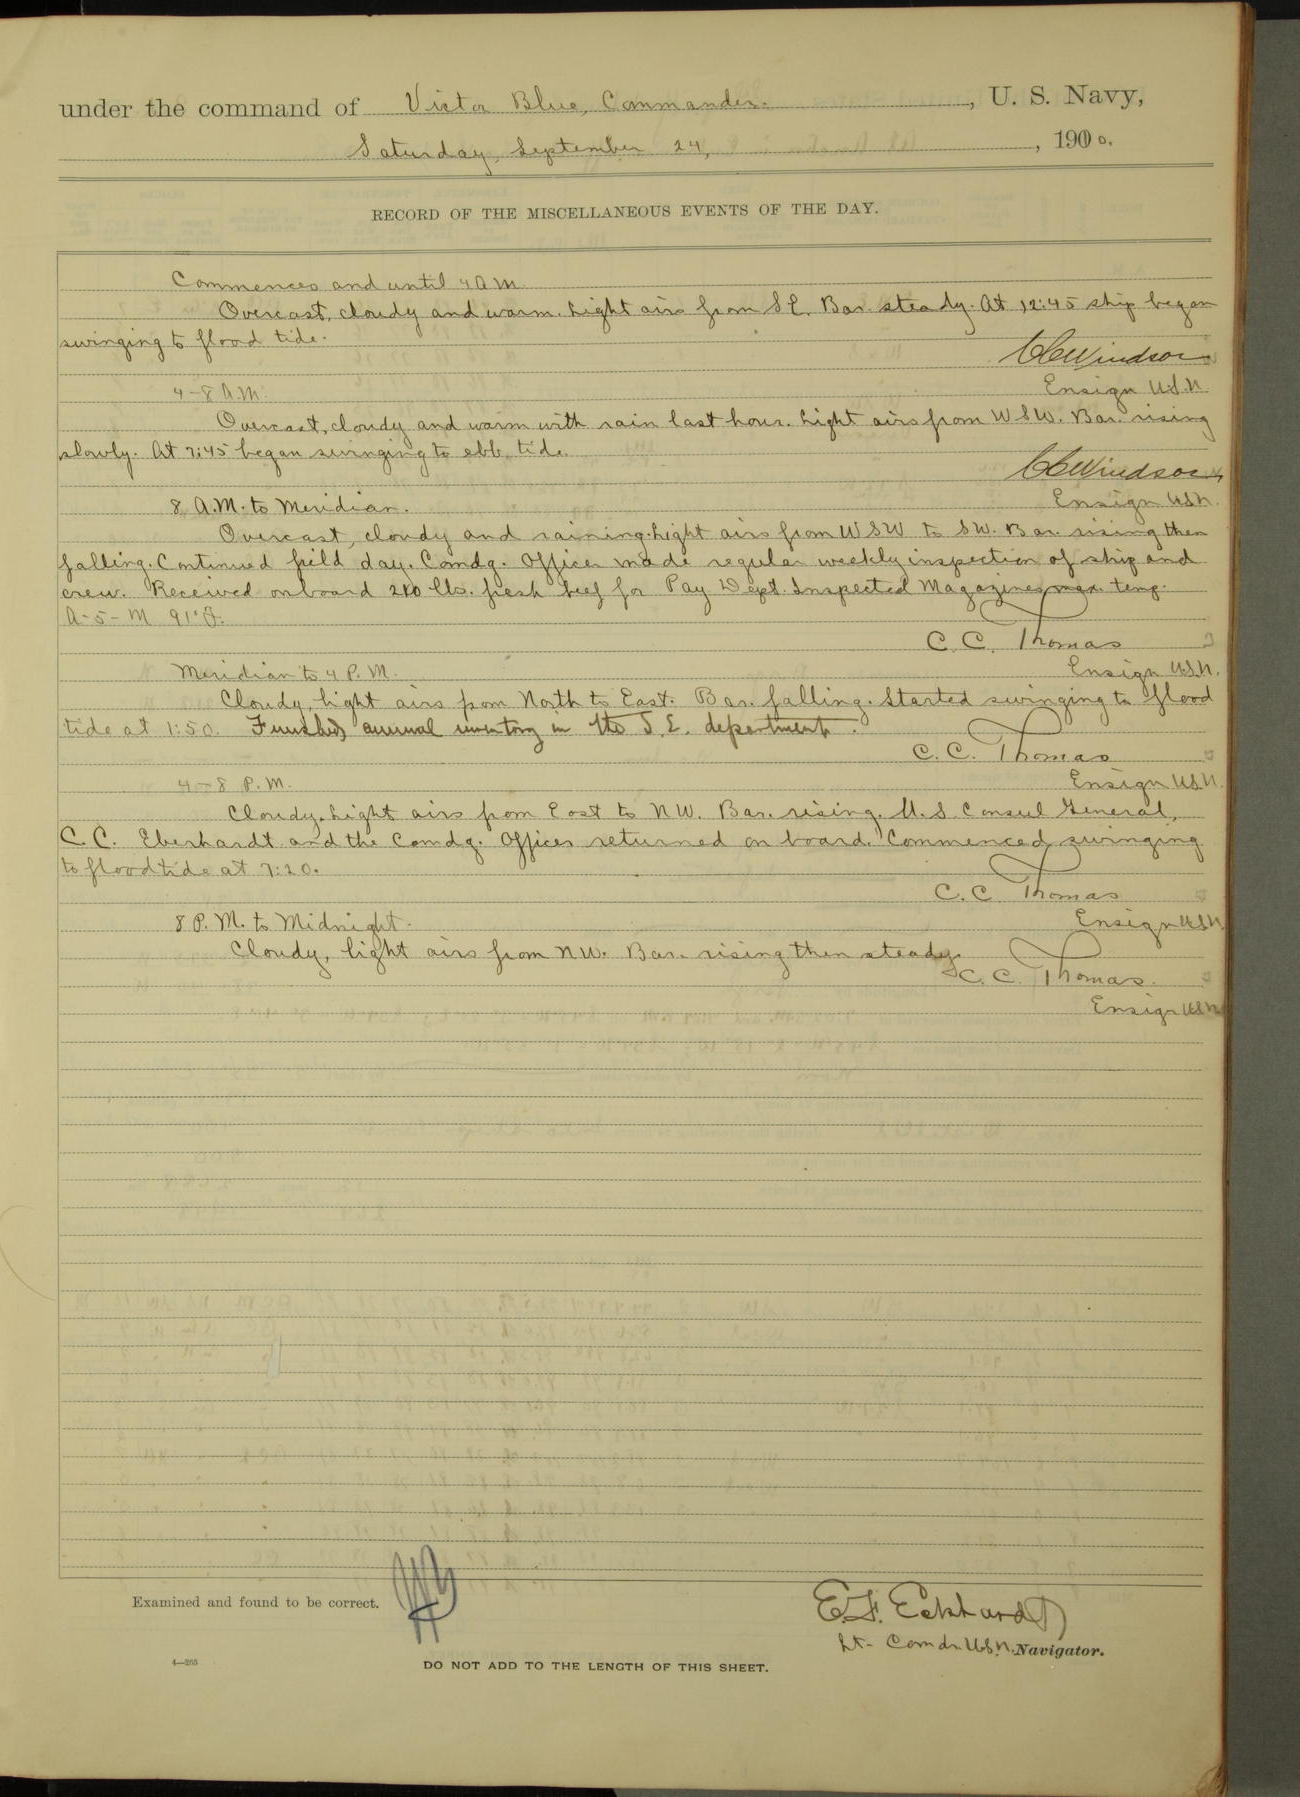 under the command of Victor Blue, Commander. , U. S. Navy,
Saturday, September 24, , 190
RECORD OF THE MISCELLANEOUS EVENTS OF THE DAY.
Commences and until 4 A.M.
Overcast, cloudy and warm. Light airs from SE. Bar. steady. At 12:45 ship began
swinging to flood tide.
CC Windsor
4-8 A.M.
Ensign U.S.N.
Overcast, cloudy and warm with rain last hour. Light airs from WSW. Bar. rising
slowly. At 7:45 began swinging to ebb tide.
CC Windsor
8 A.M. to Meridian.
Ensign U.S.N.
Overcast, cloudy and raining. Light airs from WSW to SW. Bar. rising then
falling. Continued field day. Comdg. Officer made regular weekly inspection of ship and
crew. Received on board 210 lbs. fresh beef for Pay Dept. Inspected Magazines max. temp.
A-5-M 91°F.
C. C. Thomas
Meridian to 4 P.M.
Ensign U.S.N.
Cloudy, light airs from North to East. Bar. falling. Started swinging to flood
tide at 1:50. Finished annual inventory in the S.E. department.
C. C. Thomas
4-8 P.M.
Ensign U.S.N.
Cloudy, Light airs from East to NW. Bar. rising. U.S. Consul General,
C. C. Eberhardt and the Comdg. Officer returned on board. Commenced swinging
to flood tide at 7:20.
C. C. Thomas
8 P.M. to Midnight.
Ensign U.S.N.
Cloudy, light airs from NW. Bar. rising then steady.
C. C. Thomas.
Ensign U.S.N.
Examined and found to be correct.
E. F. Eckhardt
Lt- Comdr. U.S.N. Navigator.
4—265
DO NOT ADD TO THE LENGTH OF THIS SHEET.